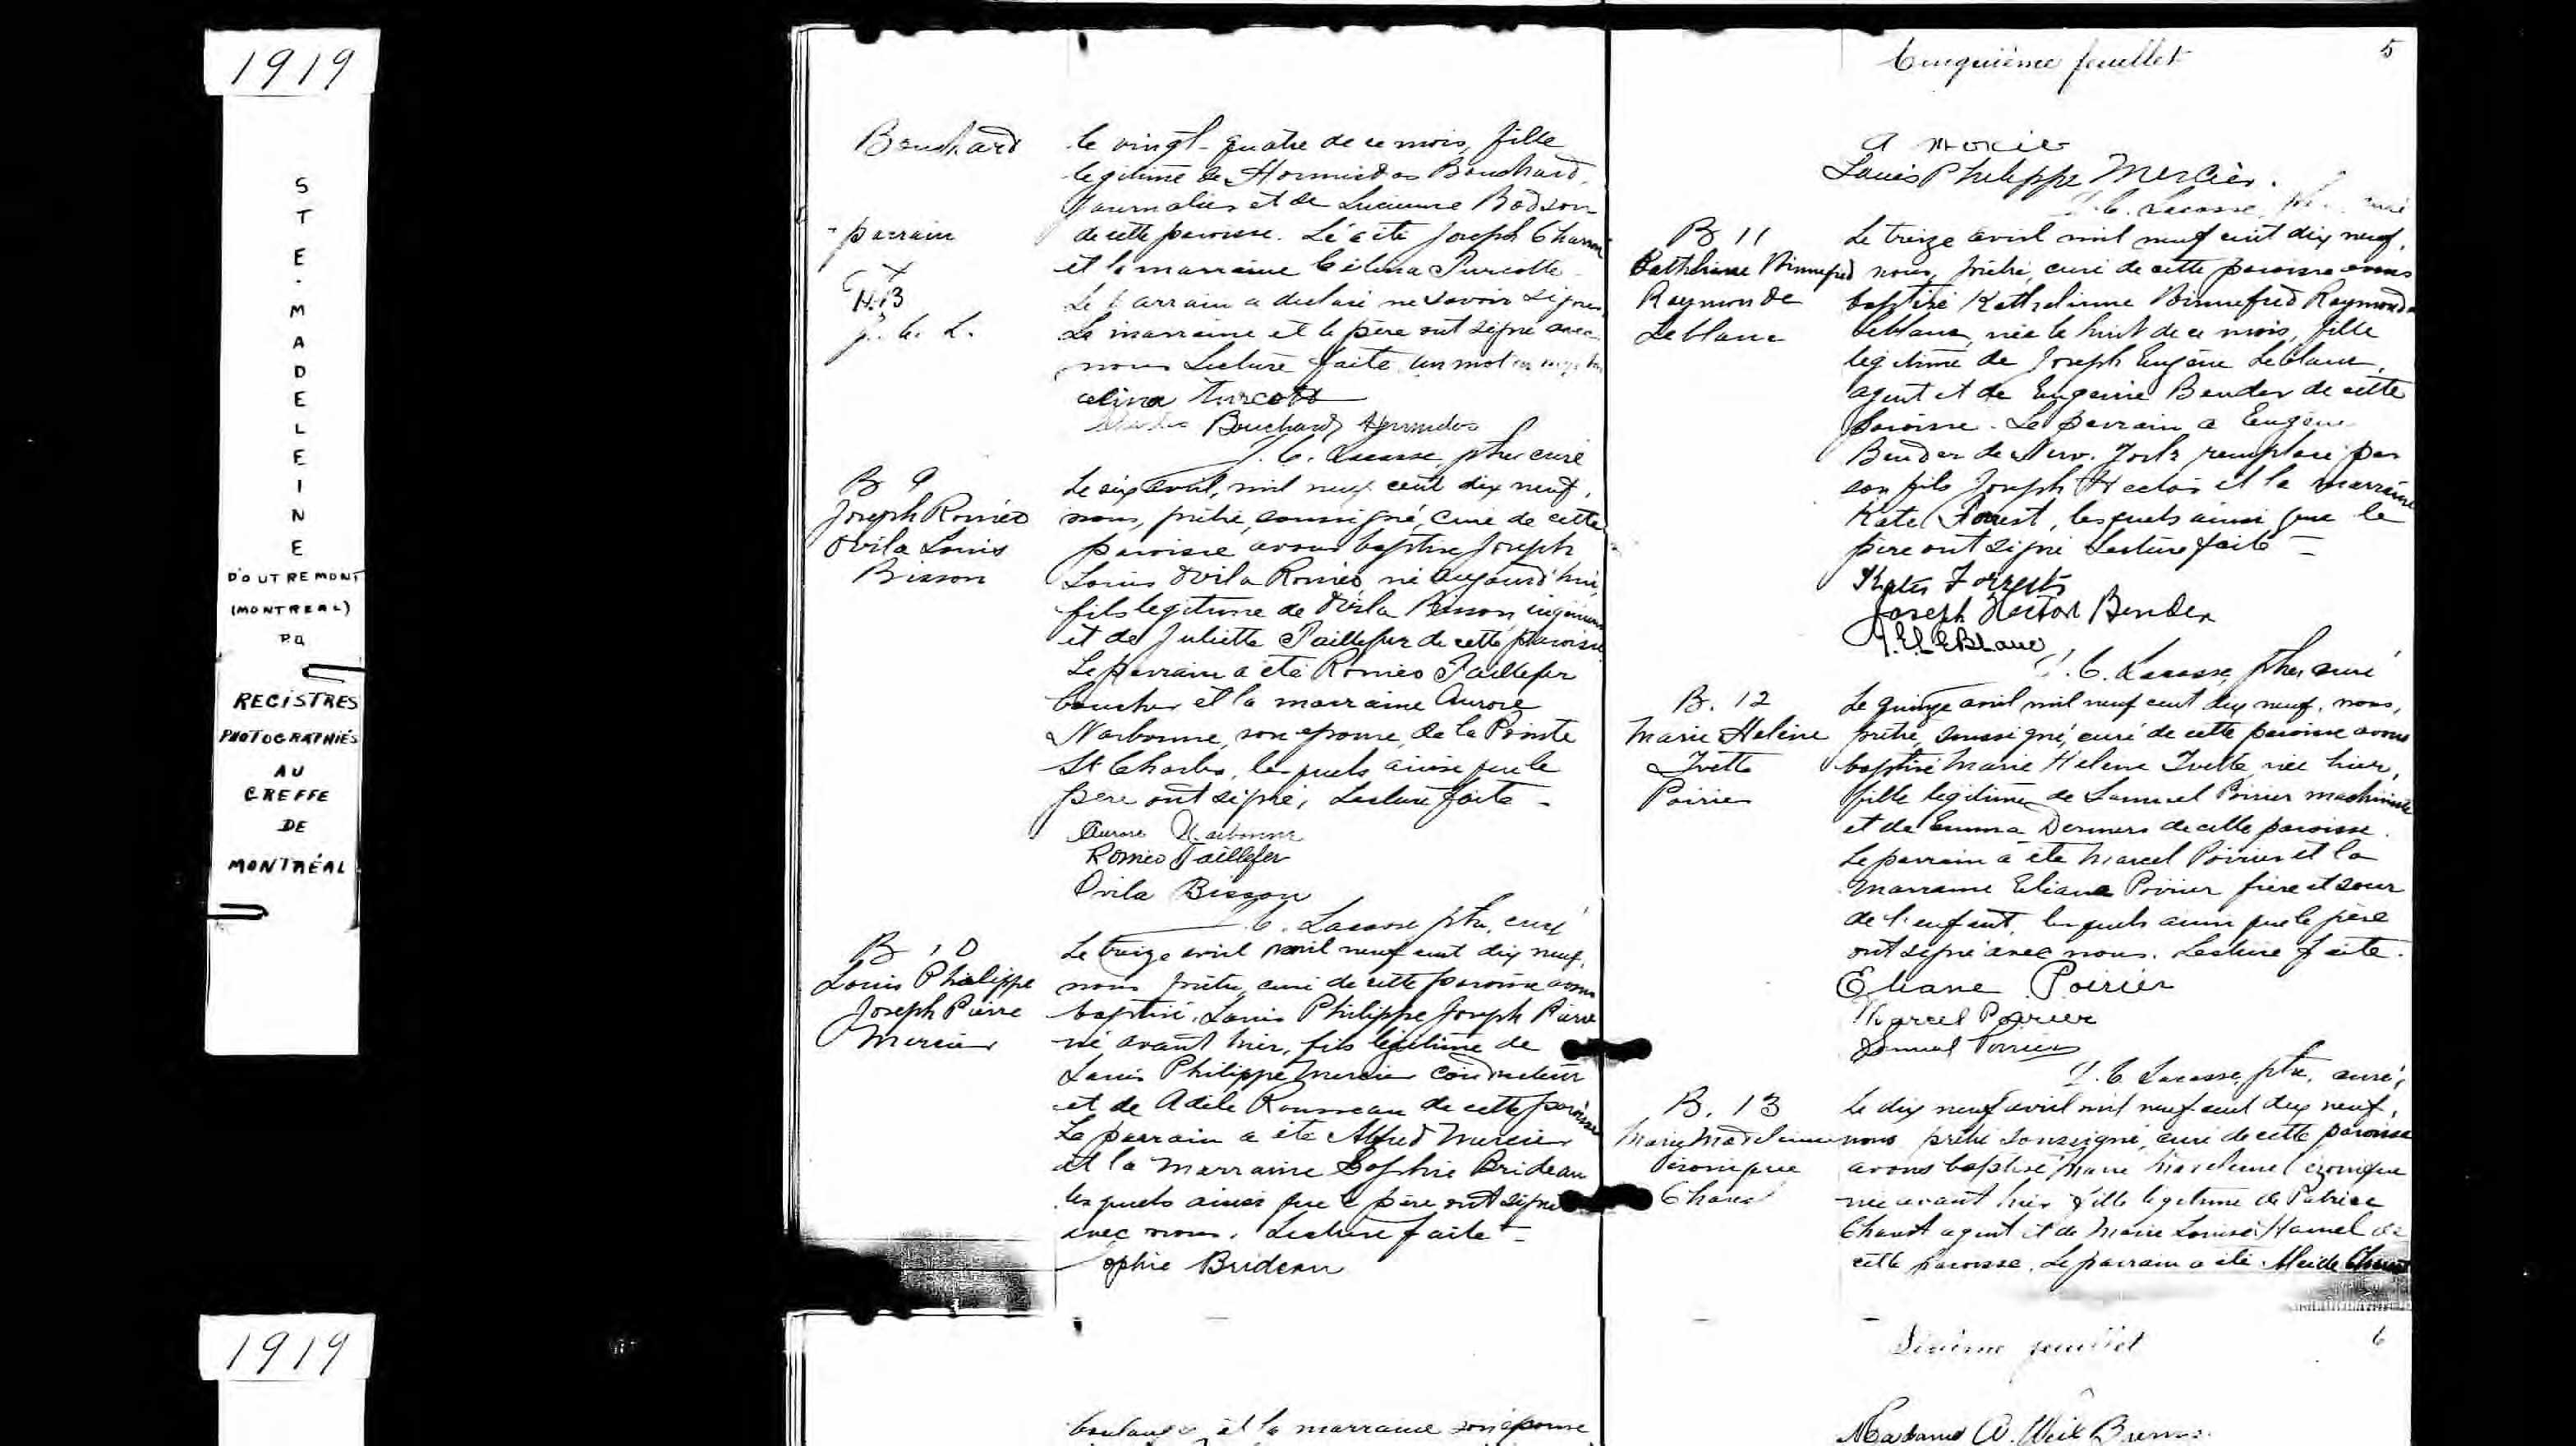 1919
STE. MADELEINE
D'OUTREMONT
(MONTREAL)
P.Q
REGISTRES
PHOTOGRAPHIÉS
AU
GREFFE
DE
MONTRÉAL
1919
Bouchard
parrain
le vingt-quatre de ce mois, fille
legitime de Hormisdas Bouchard,
journalier et de Lucienne Bodson
de cette paroisse. Joseph
et la marraine Célina Turcotte
Le parrain a declaré ne savoir signer
La marraine et le père ont signé avec
nous Lecture faite un mot en marge
celina Turcott
Bouchard Hormidos
J. C. Lacasse ptre curé
B 9
Joseph Roméo
Ovila Louis
Bisson
Le six avril, mil neuf cent dix neuf,
nous, prêtre, soussigné, curé de cette
paroisse avons baptisé Joseph
Louis Ovila Roméo né aujourd'hui,
fils legitime de Ovila Bisson, ingénieur
et de Juliette Taillefer de cette paroisse
Le parrain a été Roméo Taillefer
boucher et la marraine Aurore
Narbonne, son epouse, de la Pointe
St Charles, lesquels ainsi que le
père ont signé, Lecture faite -
Aurore Narbonne
Romeo Taillefer
Ovila Bisson
J. C. Lacasse ptre, curé
B 10
Louis Philippe
Joseph Pierre
Mercier
Le treize avril mil neuf cent dix neuf,
nous prêtre, curé de cette paroisse avons
baptisé, Louis Philippe Joseph Pierre
né avant hier, fils légitime de
Louis Philippe Mercier conducteur
et de Adèle Rousseau de cette paroisse
Le parrain a été Alfred Mercier
et la marraine Sophie Brideau
lesquels ainsi que le père ont signé
avec nous. Lecture faite -
Sophie Brideau
boulanger et la marraine son épouse
Cinquième feuillet 5
Louis Philippe Mercier.
J. C. Lacasse, ptre curé
B 11
Cathlinne Winnefred
Raymonde
Leblanc
Le treize avril mil neuf cent dix neuf,
nous, prêtre, curé de cette paroisse avons
baptisé Kathelinne Winnefred Raymonde
Leblanc, née le huit de ce mois, fille
legitime de Joseph Eugène Leblanc,
agent et de Eugenie Bender de cette
paroisse. Le parrain a Eugène
Bender de New-York remplacé par
son fils Joseph Hector et la marraine
Kate Forrest, lesquels ainsi que le
père ont signé Lecture faite -
Kate Forrest
Joseph Hector Bender
J. E. LeBlanc
J. C. Lacasse, ptre curé
B. 12
Marie Helène
Ivette
Poirier
Le quinze avril mil neuf cent dix neuf, nous,
prêtre, soussigné, curé de cette paroisse avons
baptisé Marie Helene Ivette née hier,
fille legitime de Samuel Poirier machiniste
et de Emma Demers de cette paroisse.
Le parrain a été Marcel Poirier et la
marraine Eliane Poirier frère et sœur
de l'enfant, lesquels ainsi que le père
ont signé avec nous. Lecture faite.
Eliane Poirier
Marcel Poirier
Samuel Poirier
J. C. Lacasse, ptre, curé,
B. 13
Marie Madeleine
Véronique
Charest
Le dix neuf avril mil neuf cent dix neuf,
nous prêtre soussigné, curé de cette paroisse
avons baptisé Marie Madeleine Véronique
née avant hier fille légitime de Patrice
Charest agent et de Marie Louise Hamel de
cette paroisse. Le parrain a été Alcide Charest
Sixième feuillet 6
Madame A.